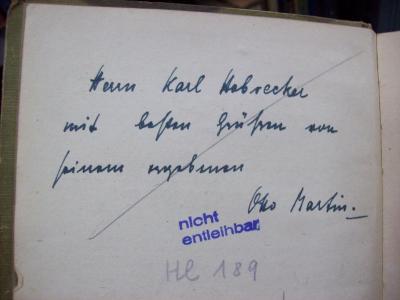 Herrn Karl Hobrecker
mit besten Grüßen von
seinem ergebenen
Otto Martin.
nicht
entleihbar
Hl 189